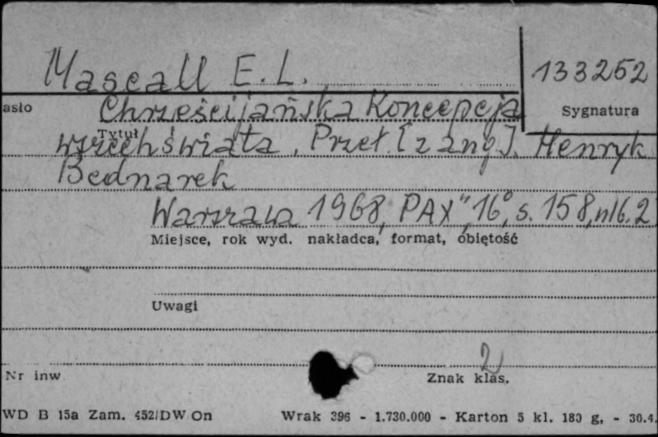 Mascall E. L.
133252
asło
Chrześcijańska Koncepcja
Sygnatura
Tytuł
wszechświata. Przeł. [z ang]. Henryk
Bednarek
Warszawa 1968, PAX", 16°, s. 158, nlb. 2
Miejsce, rok wyd. nakładca, format, objętość
Uwagi
2
Nr inw
Znak klas.
WD B 15a Zam. 452/DW On Wrak 396 - 1.730.000 - Karton 5 kl. 180 g. - 30.4.